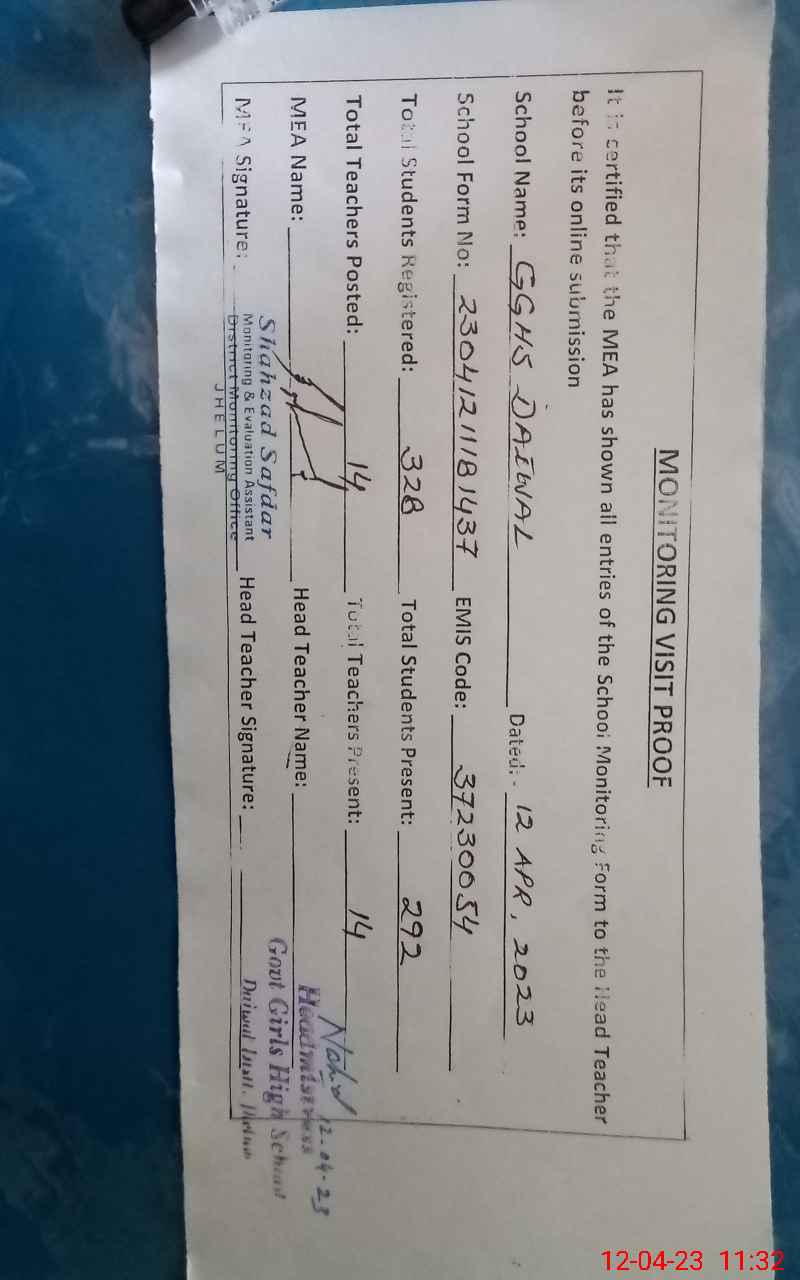 MONITORING VISIT PROOF
It is certified that the MEA has shown all entries of the School Monitoring Form to the Head Teacher
before its online submission
School Name: GGHS DAIWAL Dated:- 12 APR, 2023
School Form No: 230412111181437 EMIS Code: 37230054
Total Students Registered: 328 Total Students Present: 292
Total Teachers Posted: 14 Total Teachers Present: 14
MEA Name: Head Teacher Name:
MEA Signature: Head Teacher Signature:
Shahzad Safdar
Monitoring & Evaluation Assistant
District Monitoring Office
JHELUM
12-04-23
Headmistress
Govt Girls High School
Daiwal
12-04-23 11:32